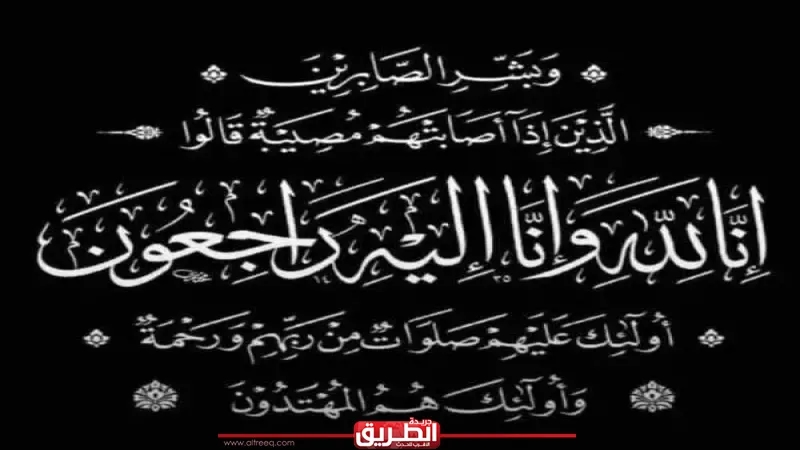 وَبَشِّرِ الصَّابِرِيْنَ
الَّذِيْنَ إِذَآ أَصَابَتْهُمْ مُصِيْبَةٌ قَالُوا
إِنَّا لِلّٰهِ وَإِنَّا إِلَيْهِ رَاجِعُونَ
أُولَٰئِكَ عَلَيْهِمْ صَلَوَاتٌ مِنْ رَبِّهِمْ وَرَحْمَةٌ
وَأُولَٰئِكَ هُمُ الْمُهْتَدُوْنَ
جريدة
الطريق
www.altreeq.com